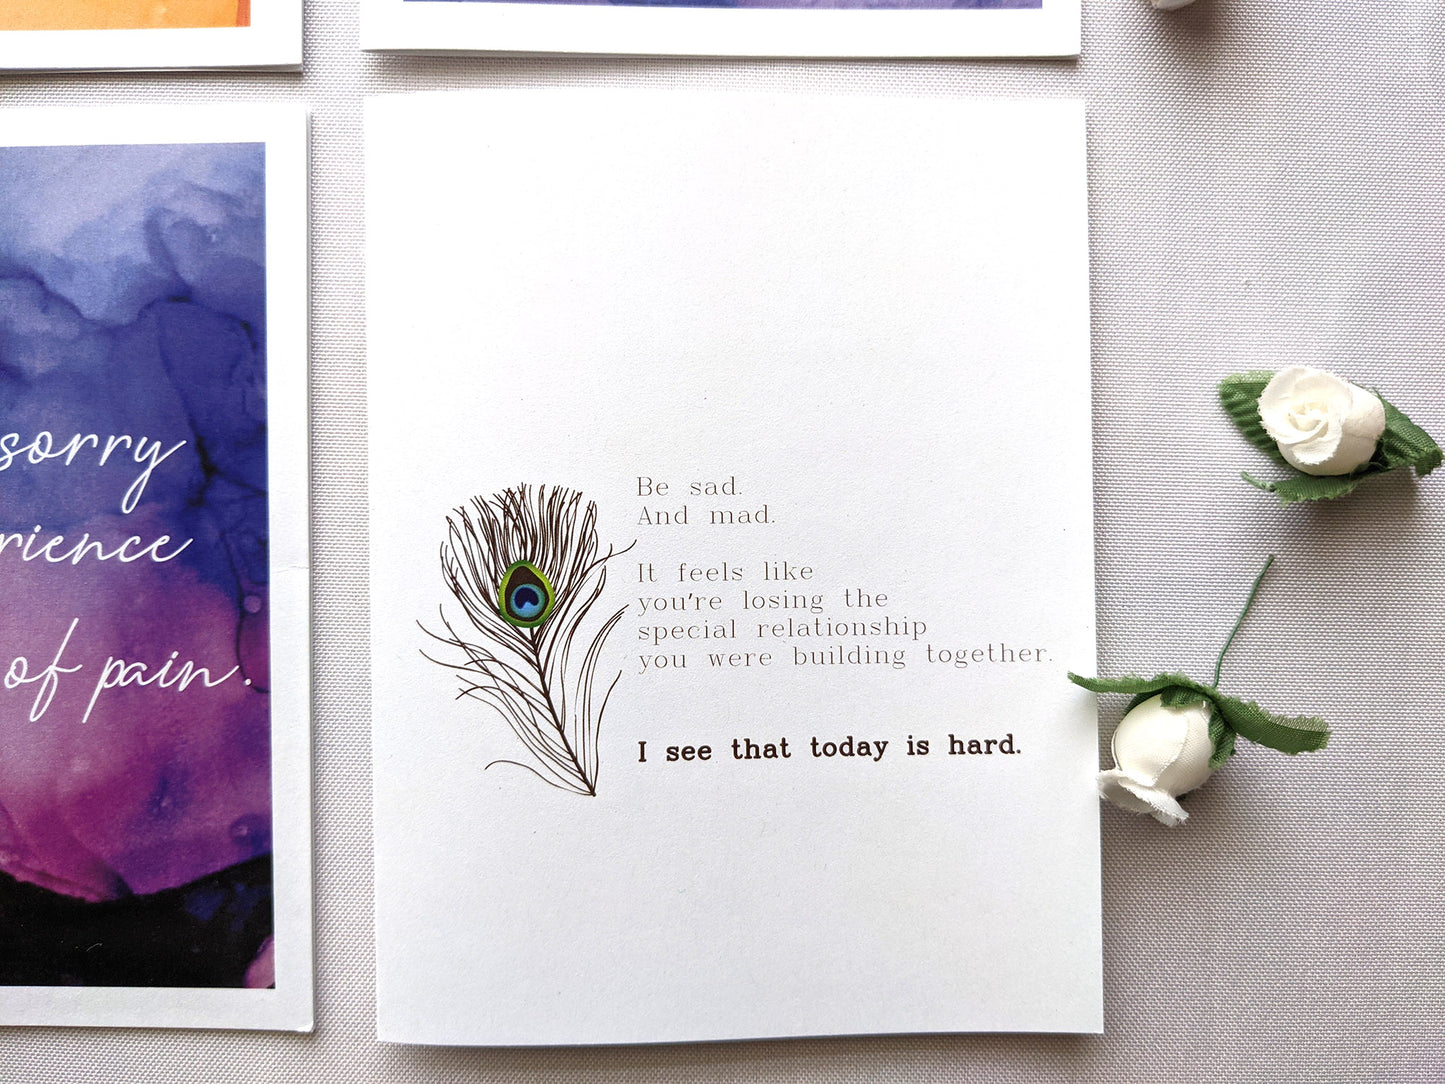 sorry
of pain.
Be sad.
And mad.
It feels like
you're losing the
special relationship
you were building together.
I see that today is hard.